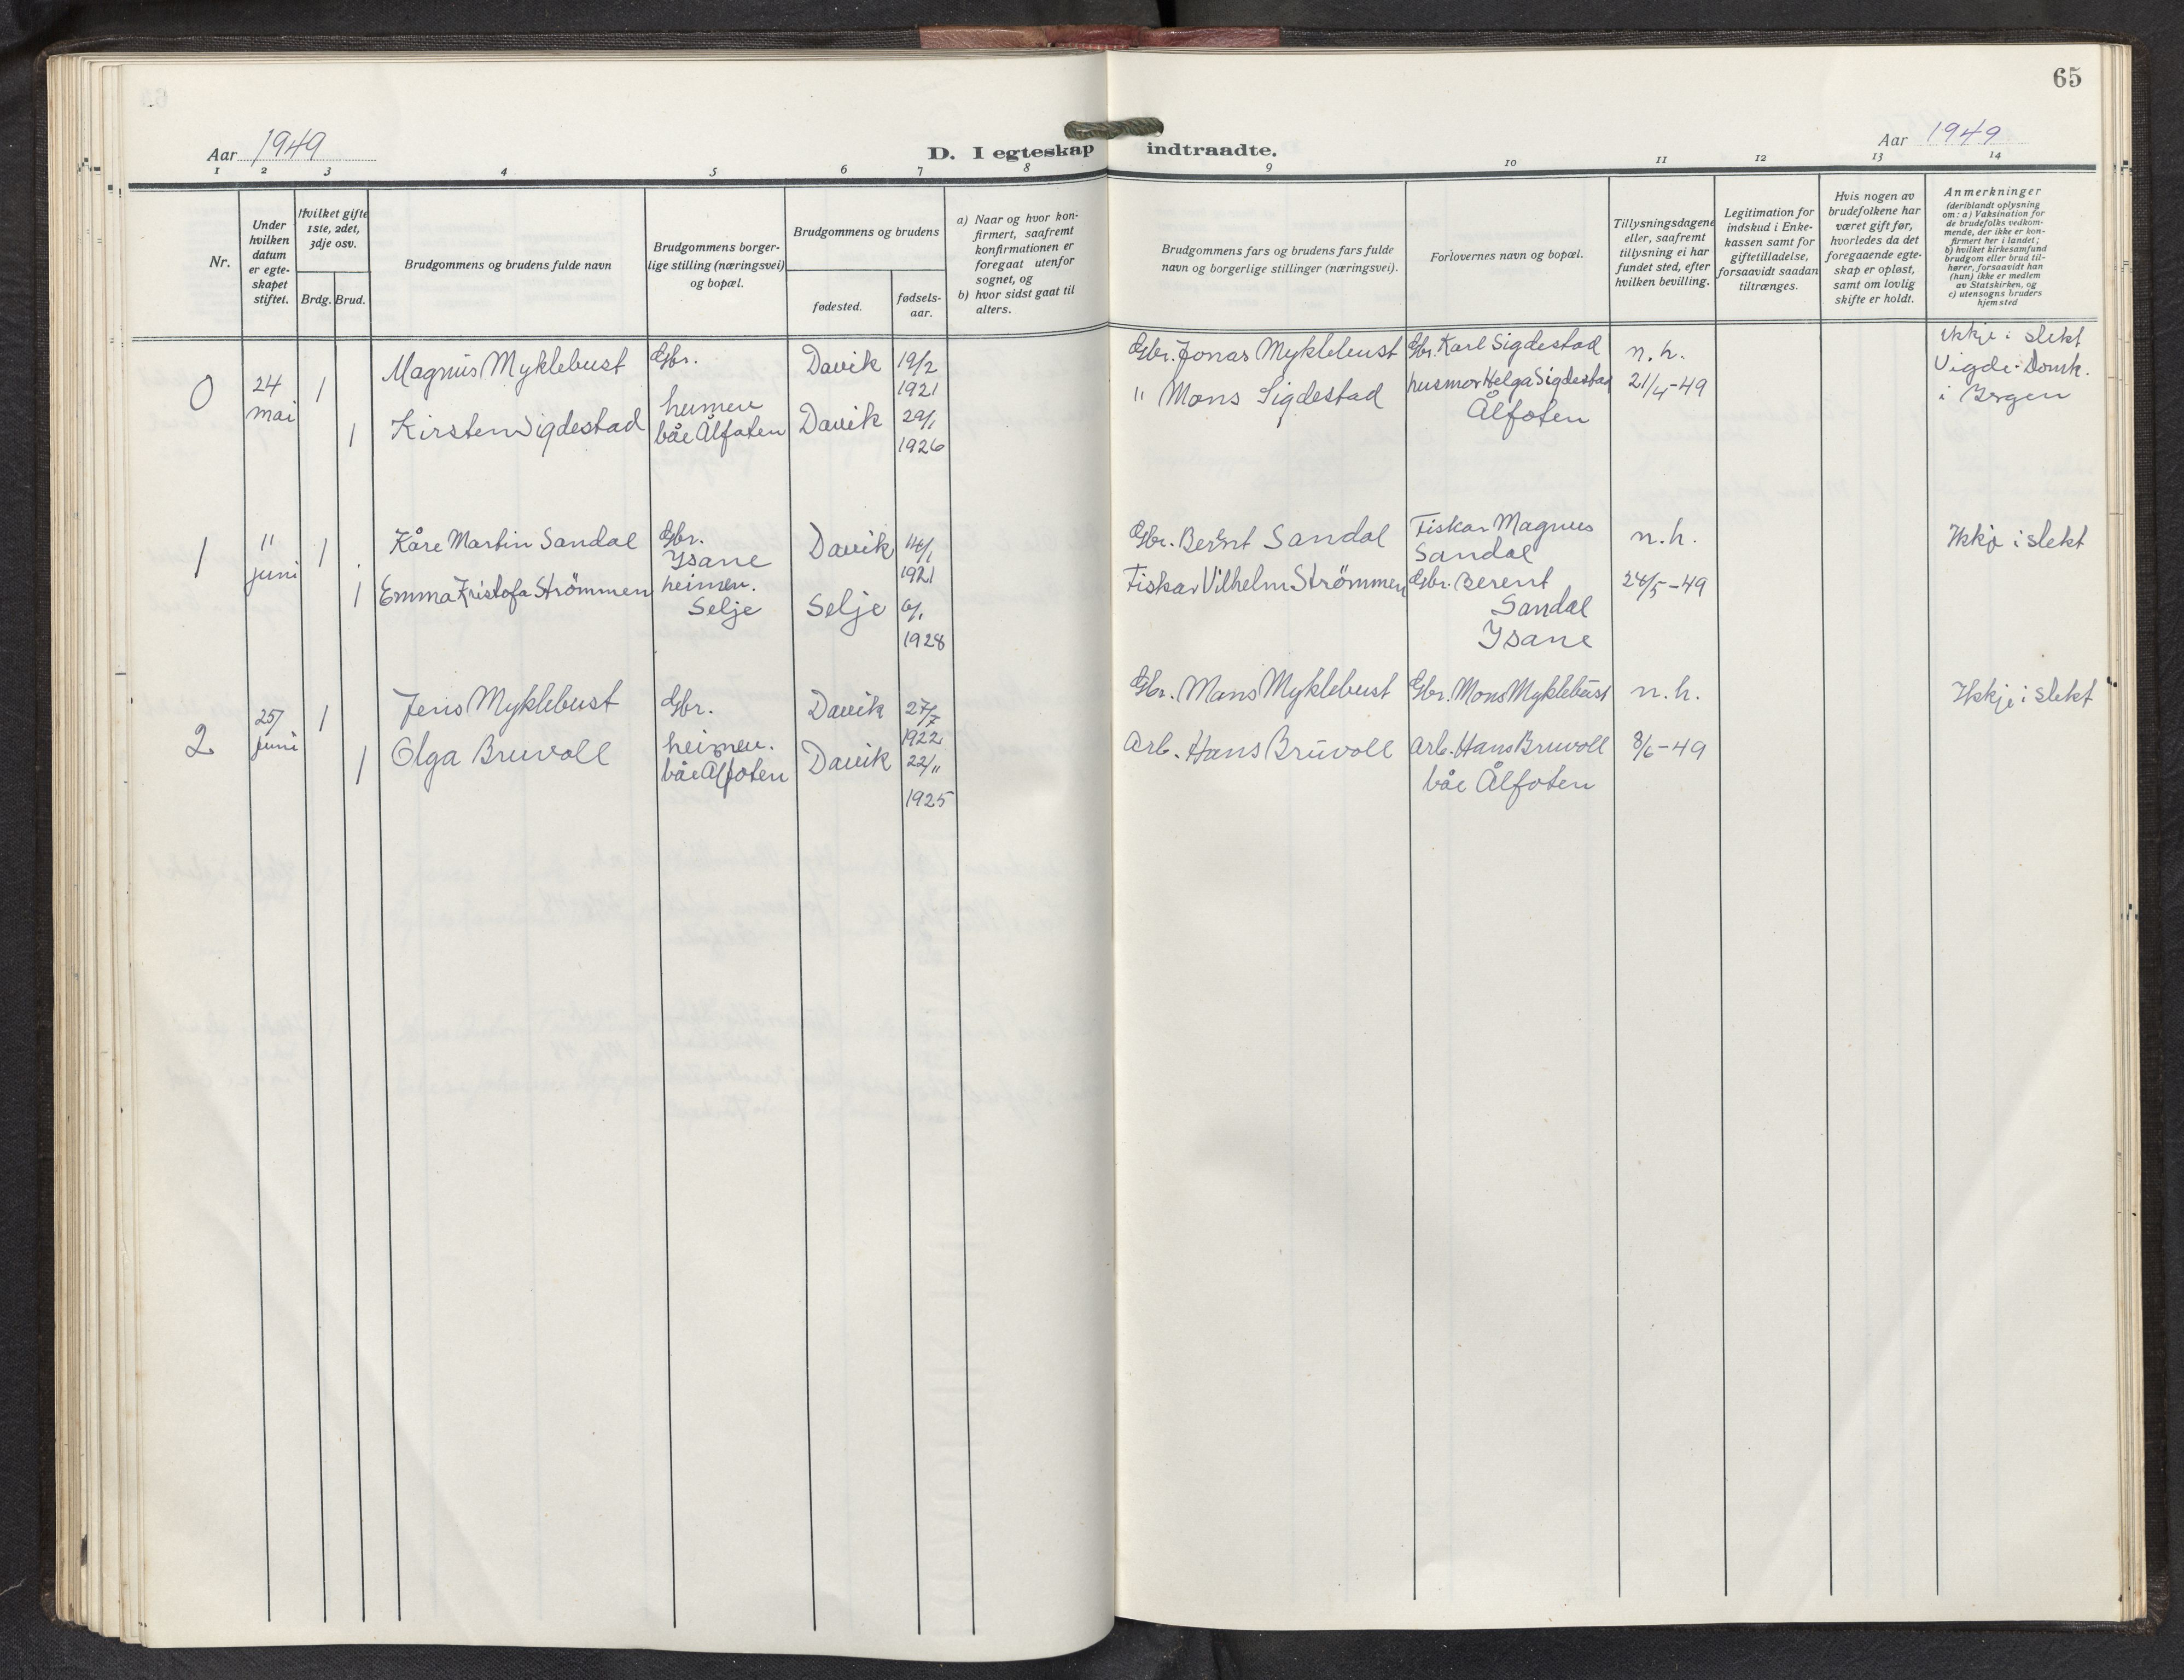 65
Aar 1949
D. I egteskap indtraadte.
Aar 1949
1 2 3 4 5 6 7 8 9 10 11 12 13 14
Nr.
Under
hvilken
datum
er egte-
skapet
stiftet.
Hvilket gifte
1ste, 2det,
3dje osv.
Brdg. Brud.
Brudgommens og brudens fulde navn
Brudgommens borger-
lige stilling (næringsvei)
og bopæl.
Brudgommens og brudens
fødested.
fødsels-
aar.
a) Naar og hvor kon-
firmert, saafremt
konfirmationen er
foregaat utenfor
sognet, og
b) hvor sidst gaat til
alters.
Brudgommens fars og brudens fars fulde
navn og borgerlige stillinger (næringsvei).
Forlovernes navn og bopæl.
Tillysningsdagene
eller, saafremt
tillysning ei har
fundet sted, efter
hvilken bevilling.
Legitimation for
indskud i Enke-
kassen samt for
giftetilladelse,
forsaavidt saadan
tiltrænges.
Hvis nogen av
brudefolkene har
været gift før,
hvorledes da det
foregaaende egte-
skap er opløst,
samt om lovlig
skifte er holdt.
Anmerkninger
(deriblandt oplysning
om: a) Vaksination for
de brudefolks vedkom-
mende, der ikke er kon-
firmert her i landet;
b) hvilket kirkesamfund
brudgom eller brud til-
hører, forsaavidt han
(hun) ikke er medlem
av Statskirken, og
c) utensogns bruders
hjemsted
0
24
mai
1
Magnus Myklebust
Gbr.
Davik
19/2
1921
1
Kirsten Sigdestad
heimen
båe Ålfoten
Davik
29/1
1926
Gbr. Jonas Myklebust
" Mons Sigdestad
Gbr. Karl Sigdestad
husmor Helga Sigdestad
Ålfoten
n.h.
21/4-49
ikkje i slekt
Vigde i Domk.
i Bergen
1
11
juni
1
Kåre Martin Sandal
Gbr.
Isane
Davik
14/1
1921
1
Emma Kristofa Strömmen
heimen.
Selje
Selje
6/1
1928
Gbr. Bernt Sandal
Fiskar Vilhelm Strömmen
Fiskar Magnus
Sandal
Gbr. Berent
Sandal
Isane
n.h.
24/5-49
Ikkje i slekt
2
25/
juni
1
Jens Myklebust
Gbr.
Davik
27/7
1922
1
Olga Bruvoll
heimen.
båe Ålfoten
Davik
22/11
1925
Gbr. Mons Myklebust
Arb. Hans Bruvoll
Gbr. Mons Myklebust
Arb. Hans Bruvoll
båe Ålfoten
n.h.
8/6-49
Ikkje i slekt